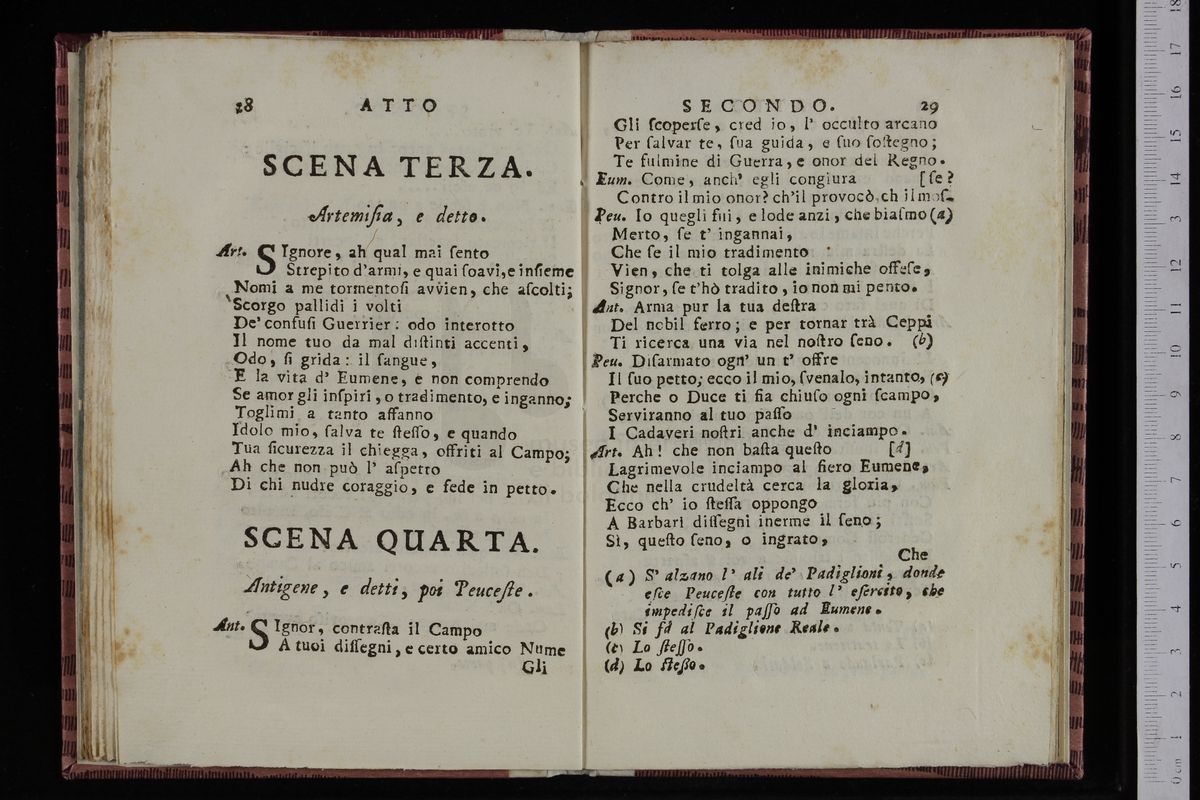 28 ATTO
SCENA TERZA.
Artemiſia, e detto.
Art. SIgnore, ah qual mai ſento
Strepito d'armi, e quai ſoavi, e inſieme
Nomi a me tormentoſi avvien, che aſcolti;
Scorgo pallidi i volti
De' confuſi Guerrier: odo interotto
Il nome tuo da mal diſtinti accenti,
Odo, ſi grida: il ſangue,
E la vita d' Eumene, e non comprendo
Se amor gli inſpiri, o tradimento, e inganno;
Toglimi a tanto affanno
Idolo mio, ſalva te ſteſſo, e quando
Tua ſicurezza il chiegga, offriti al Campo;
Ah che non può l' aſpetto
Di chi nudre coraggio, e fede in petto.
SCENA QUARTA.
Antigene, e detti, poi Peuceſte.
Ant. SIgnor, contraſta il Campo
A tuoi diſſegni, e certo amico Nume
Gli
SECONDO. 29
Gli ſcoperſe, cred io, l' occulto arcano
Per ſalvar te, ſua guida, e ſuo ſoſtegno;
Te fulmine di Guerra, e onor del Regno.
Eum. Come, anch' egli congiura [ſe?
Contro il mio onor? ch'il provocò, ch il moſ-
Peu. Io quegli fui, e lode anzi, che biaſmo (a)
Merto, ſe t' ingannai,
Che ſe il mio tradimento
Vien, che ti tolga alle inimiche offeſe,
Signor, ſe t'hò tradito, io non mi pento.
Ant. Arma pur la tua deſtra
Del nobil ferro; e per tornar trà Ceppi
Ti ricerca una via nel noſtro ſeno. (b)
Peu. Diſarmato ogn' un t' offre
Il ſuo petto; ecco il mio, ſvenalo, intanto, (c)
Perche o Duce ti ſia chiuſo ogni ſcampo,
Serviranno al tuo paſſo
I Cadaveri noſtri anche d' inciampo.
Art. Ah! che non baſta queſto [d]
Lagrimevole inciampo al fiero Eumene,
Che nella crudeltà cerca la gloria,
Ecco ch' io ſteſſa oppongo
A Barbari diſſegni inerme il ſeno;
Sì, queſto ſeno, o ingrato,
Che
(a) S' alzano l' ali de' Padiglioni, donde
eſce Peuceſte con tutto l' eſercito, che
impediſce il paſſo ad Eumene.
(b) Si fà al Padiglione Reale.
(c) Lo ſteſſo.
(d) Lo ſteßo.
0 cm 1 2 3 4 5 6 7 8 9 10 11 12 13 14 15 16 17 18